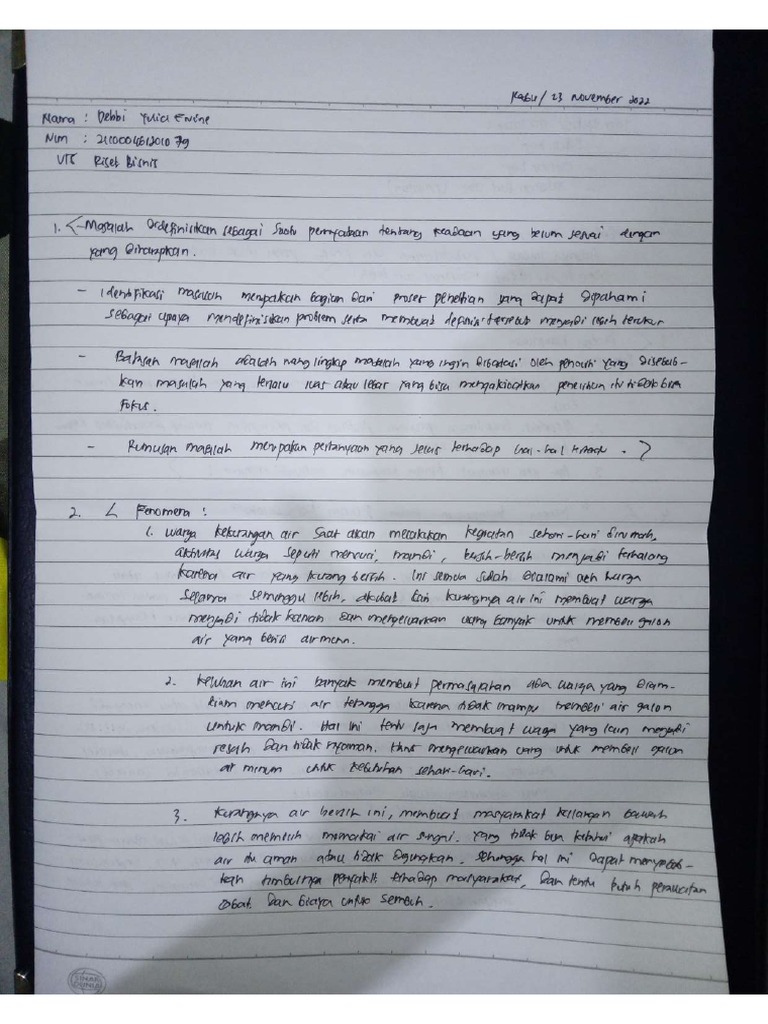 Rabu / 23 November 2022
Nama : Debbi Yulia Erine
Nim : 2110004612010 79
UTS Riset Bisnis
1. <- Masalah Didefinisikan sebagai suatu pernyataan tentang keadaan yang belum sesuai dengan
yang Diharapkan.
- Identifikasi masalah merupakan bagian Dari proses penelitian yang dapat Dipahami
sebagai upaya mendefinisikan problem serta membuat definisi tersebut menjadi lebih terukur
- Batasan masalah adalah ruang lingkup masalah yang ingin Dibatasi oleh peneliti yang Disebab-
kan masalah yang terlalu luas atau lebar yang bisa mengakibatkan penelitian itu tidak bisa
Fokus.
- Rumusan masalah merupakan pertanyaan yang jelas terhadap hal-hal . >
2. < Fenomena :
1. Warga kekurangan air saat akan melakukan kegiatan sehari-hari dirumah,
aktivitas warga seperti mencuci, mandi, bersih-bersih menjadi terhalang
karena air yang kurang bersih. Ini semua sudah Dialami oleh warga
selama seminggu lebih, akibat Dari kurangnya air ini membuat warga
menjadi tidak Dan mengeluarkan uang banyak untuk membeli galon
air yang berisi air minum.
2. Keluhan air ini banyak membuat permasalahan ada warga yang Diam-
Diam mencuri air tetangga karena tidak mampu membeli air galon
untuk mandi. Hal ini tentu saja membuat warga yang lain menjadi
resah Dan tidak nyaman. Harus mengeluarkan uang untuk membeli galon
air minum untuk kebutuhan sehari-hari.
3. Kurangnya air bersih ini, membuat masyarakat kalangan bawah
lebih memilih memakai air sungai. Yang tidak bisa ketahui apakah
air itu aman atau tidak digunakan. Sehingga hal ini Dapat menyebab-
kan timbulnya penyakit terhadap masyarakat, Dan tentu butuh perawatan
obat Dan biaya untuk sembuh.
SINAR
DUNIA